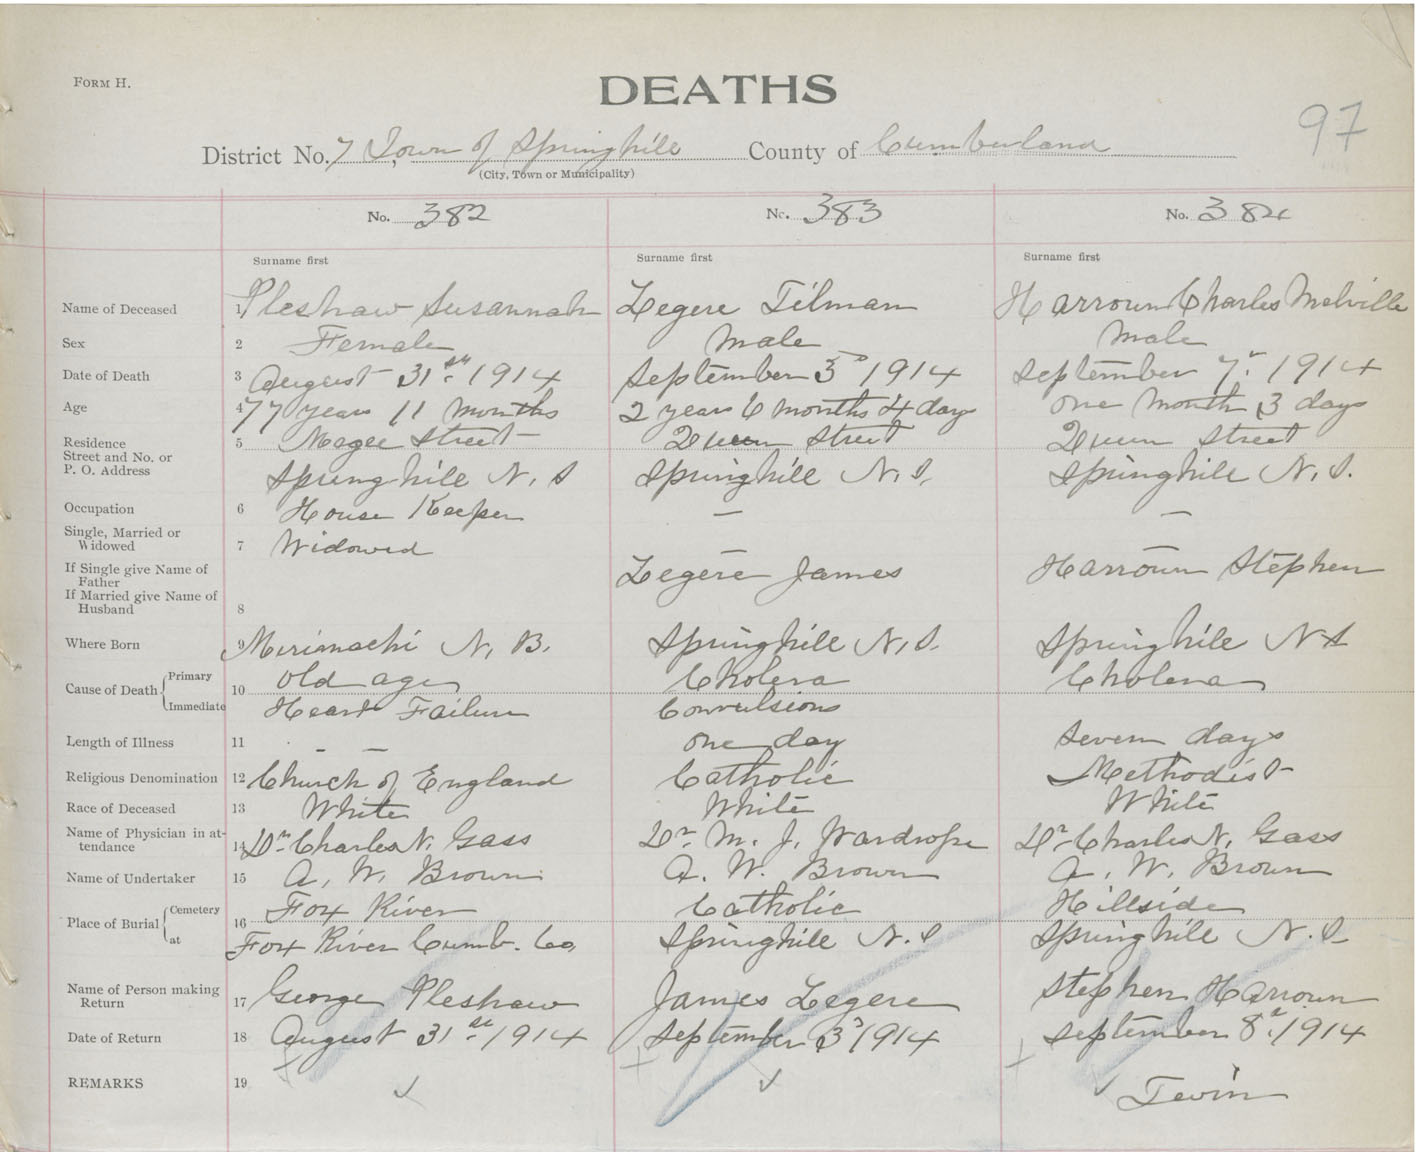 FORM H.
DEATHS
97
District No. 7 Town of Springhill County of Cumberland
(City, Town or Municipality)
No. 382 No. 383 No. 384
Surname first Surname first Surname first
Name of Deceased 1 Pleshaw Susannah Legere Tilman Harroun Charles Melville
Sex 2 Female Male Male
Date of Death 3 August 31st 1914 September 3d 1914 September 7th 1914
Age 4 77 years 11 months 2 years 6 months 4 days one month 3 days
Residence 5 McGee Street Queen Street Queen Street
Street and No. or
P. O. Address Springhill N. S Springhill N. S. Springhill N. S.
Occupation 6 House Keeper — —
Single, Married or
Widowed 7 Widowed — —
If Single give Name of
Father Legere James Harroun Stephen
If Married give Name of
Husband 8
Where Born 9 Mirimachi N. B. Springhill N. S. Springhill N S
Cause of Death Primary 10 old age Cholera Cholera
Immediate Heart Failure Convulsions
Length of Illness 11 — — one day Seven days
Religious Denomination 12 Church of England Catholic Methodist
Race of Deceased 13 White White White
Name of Physician in at-
tendance 14 Dr. Charles N. Gass Dr. M. J. Wardrope Dr. Charles N. Gass
Name of Undertaker 15 A. W. Brown A. W. Brown A. W. Brown
Place of Burial Cemetery 16 Fox River Catholic Hillside
at Fox River Cumb. Co. Springhill N. S Springhill N. S.
Name of Person making
Return 17 George Pleshaw James Legere Stephen Harroun
Date of Return 18 August 31st 1914 September 3d 1914 September 8th 1914
REMARKS 19 Twin